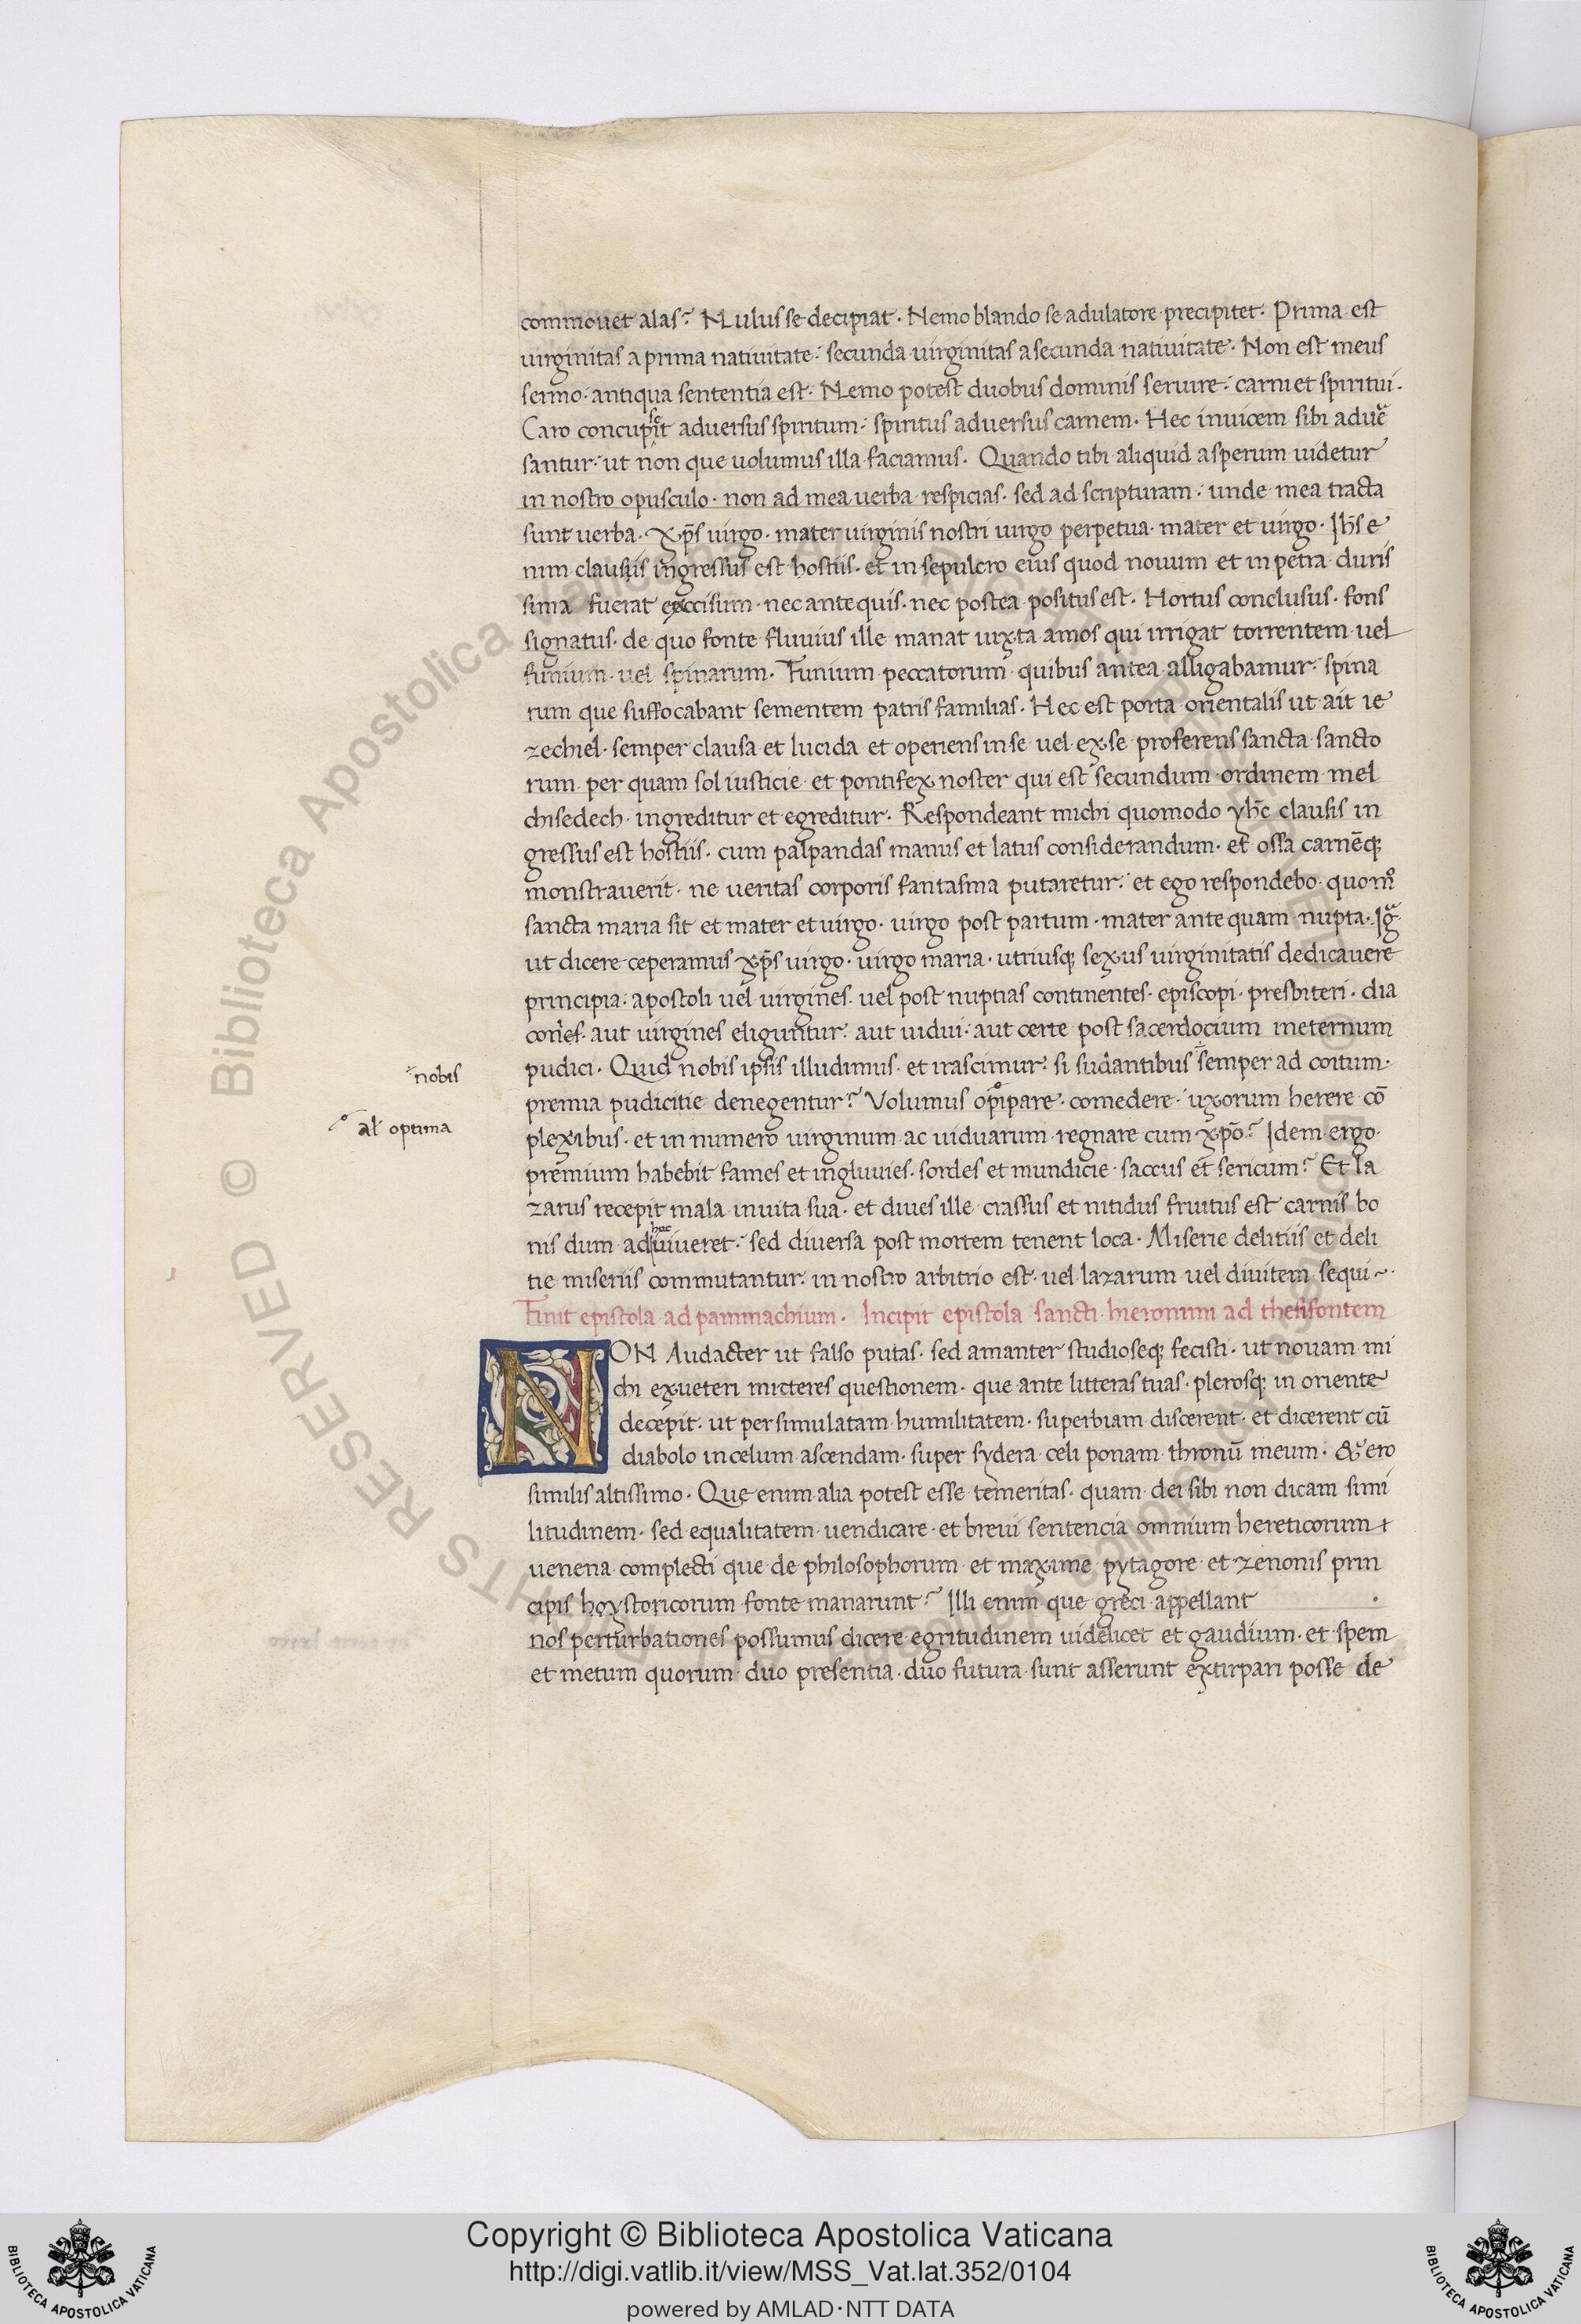 commouet alas? Nulus se decipiat. Nemo blando se adulatore precipitet. Prima est
uirginitas a prima natiuitate: secunda uirginitas a secunda natiuitate. Non est meus
sermo. antiqua sententia est. Nemo potest duobus dominis seruire: carni et spiritui.
Caro concupiscit aduersus spiritum: spiritus aduersus carnem. Hec inuicem sibi adue
santur: ut non que uolumus illa faciamus. Quando tibi aliquid asperum uidetur
in nostro opusculo. non ad mea uerba respicias. sed ad scripturam: unde mea tracta
sunt uerba. xp̄s uirgo. mater uirginis nostri uirgo perpetua. mater et uirgo. Ih̄s e
nim clausiis ingressus est hostiis. et in sepulcro eius quod nouum et in petra duris
sima fuerat exccisum. nec ante quis. nec postea positus est. Hortus conclusus. fons
signatus. de quo fonte fluuius ille manat iuxta amos qui irrigat torrentem uel
funium. uel spinarum. Funium peccatorum quibus antea alligabamur: spina
rum que suffocabant sementem patris familias. Hec est porta orientalis ut ait ie
zechiel. semper clausa et lucida et operiens in se uel ex se proferens sancta sancto
rum. per quam sol iusticie et pontifex noster qui est secundum ordinem mel
chisedech. ingreditur et egreditur. Respondeant michi quomodo yh̄c clausis in
gressus est hostiis. cum palpandas manus et latus considerandum. et ossa carnēq;
monstrauerit. ne ueritas corporis fantasma putaretur: et ego respondebo. quom̊
sancta maria sit et mater et uirgo. uirgo post partum. mater ante quam nupta. Ig̃
ut dicere ceperamus xp̄s uirgo. uirgo maria. utriusq; sexus uirginitatis dedicauere
principia. apostoli uel uirgines. uel post nuptias continentes. episcopi. presbiteri. dia
cones. aut uirgines eliguntur: aut uidui. aut certe post sacerdocium ineternum
pudici. Quid nobis ipsis illudimus. et irascimur: si sudantibus semper ad coitum.
nobis
premia pudicitie denegentur? Volumus opipare. comedere. uxorum herere cō
al' optima
plexibus. et in numero uirginum ac uiduarum regnare cum xp̄o? Idem ergo.
premium habebit fames et ingluuies. sordes et mundicie. saccus et sericum? Et la
zarus recepit mala in uita sua. et diues ille crassus et nitidus fruitus est carnis bo
nis dum adhuc uiueret: sed diuersa post mortem tenent loca. Miserie delitiis et deli
tie miseriis commutantur. in nostro arbitrio est. uel lazarum uel diuitem sequi~.
Finit epistola ad pammachium. Incipit epistola sancti hieronimi ad thesifontem
NON Audacter ut falso putas. sed amanter studioseq; fecisti. ut nouam mi
chi ex ueteri micteres questionem. que ante litteras tuas. plerosq; in oriente
decepit. ut per simulatam humilitatem. superbiam discerent. et dicerent cū
diabolo in celum ascendam. super sydera celi ponam thronū meum. & ero
similis altissimo. Que enim alia potest esse temeritas. quam dei sibi non dicam simi
litudinem. sed equalitatem uendicare. et breui sentencia omnium hereticorum
uenena complecti que de philosophorum et maxime pytagore et zenonis prin
cipis hoystoricorum fonte manarunt? Illi enim que greci appellant
nos perturbationes possumus dicere egritudinem uidelicet et gaudium. et spem
et metum quorum duo presentia. duo futura sunt asserunt extirpari posse de
Copyright © Biblioteca Apostolica Vaticana
http://digi.vatlib.it/view/MSS_Vat.lat.352/0104
powered by AMLAD·NTT DATA